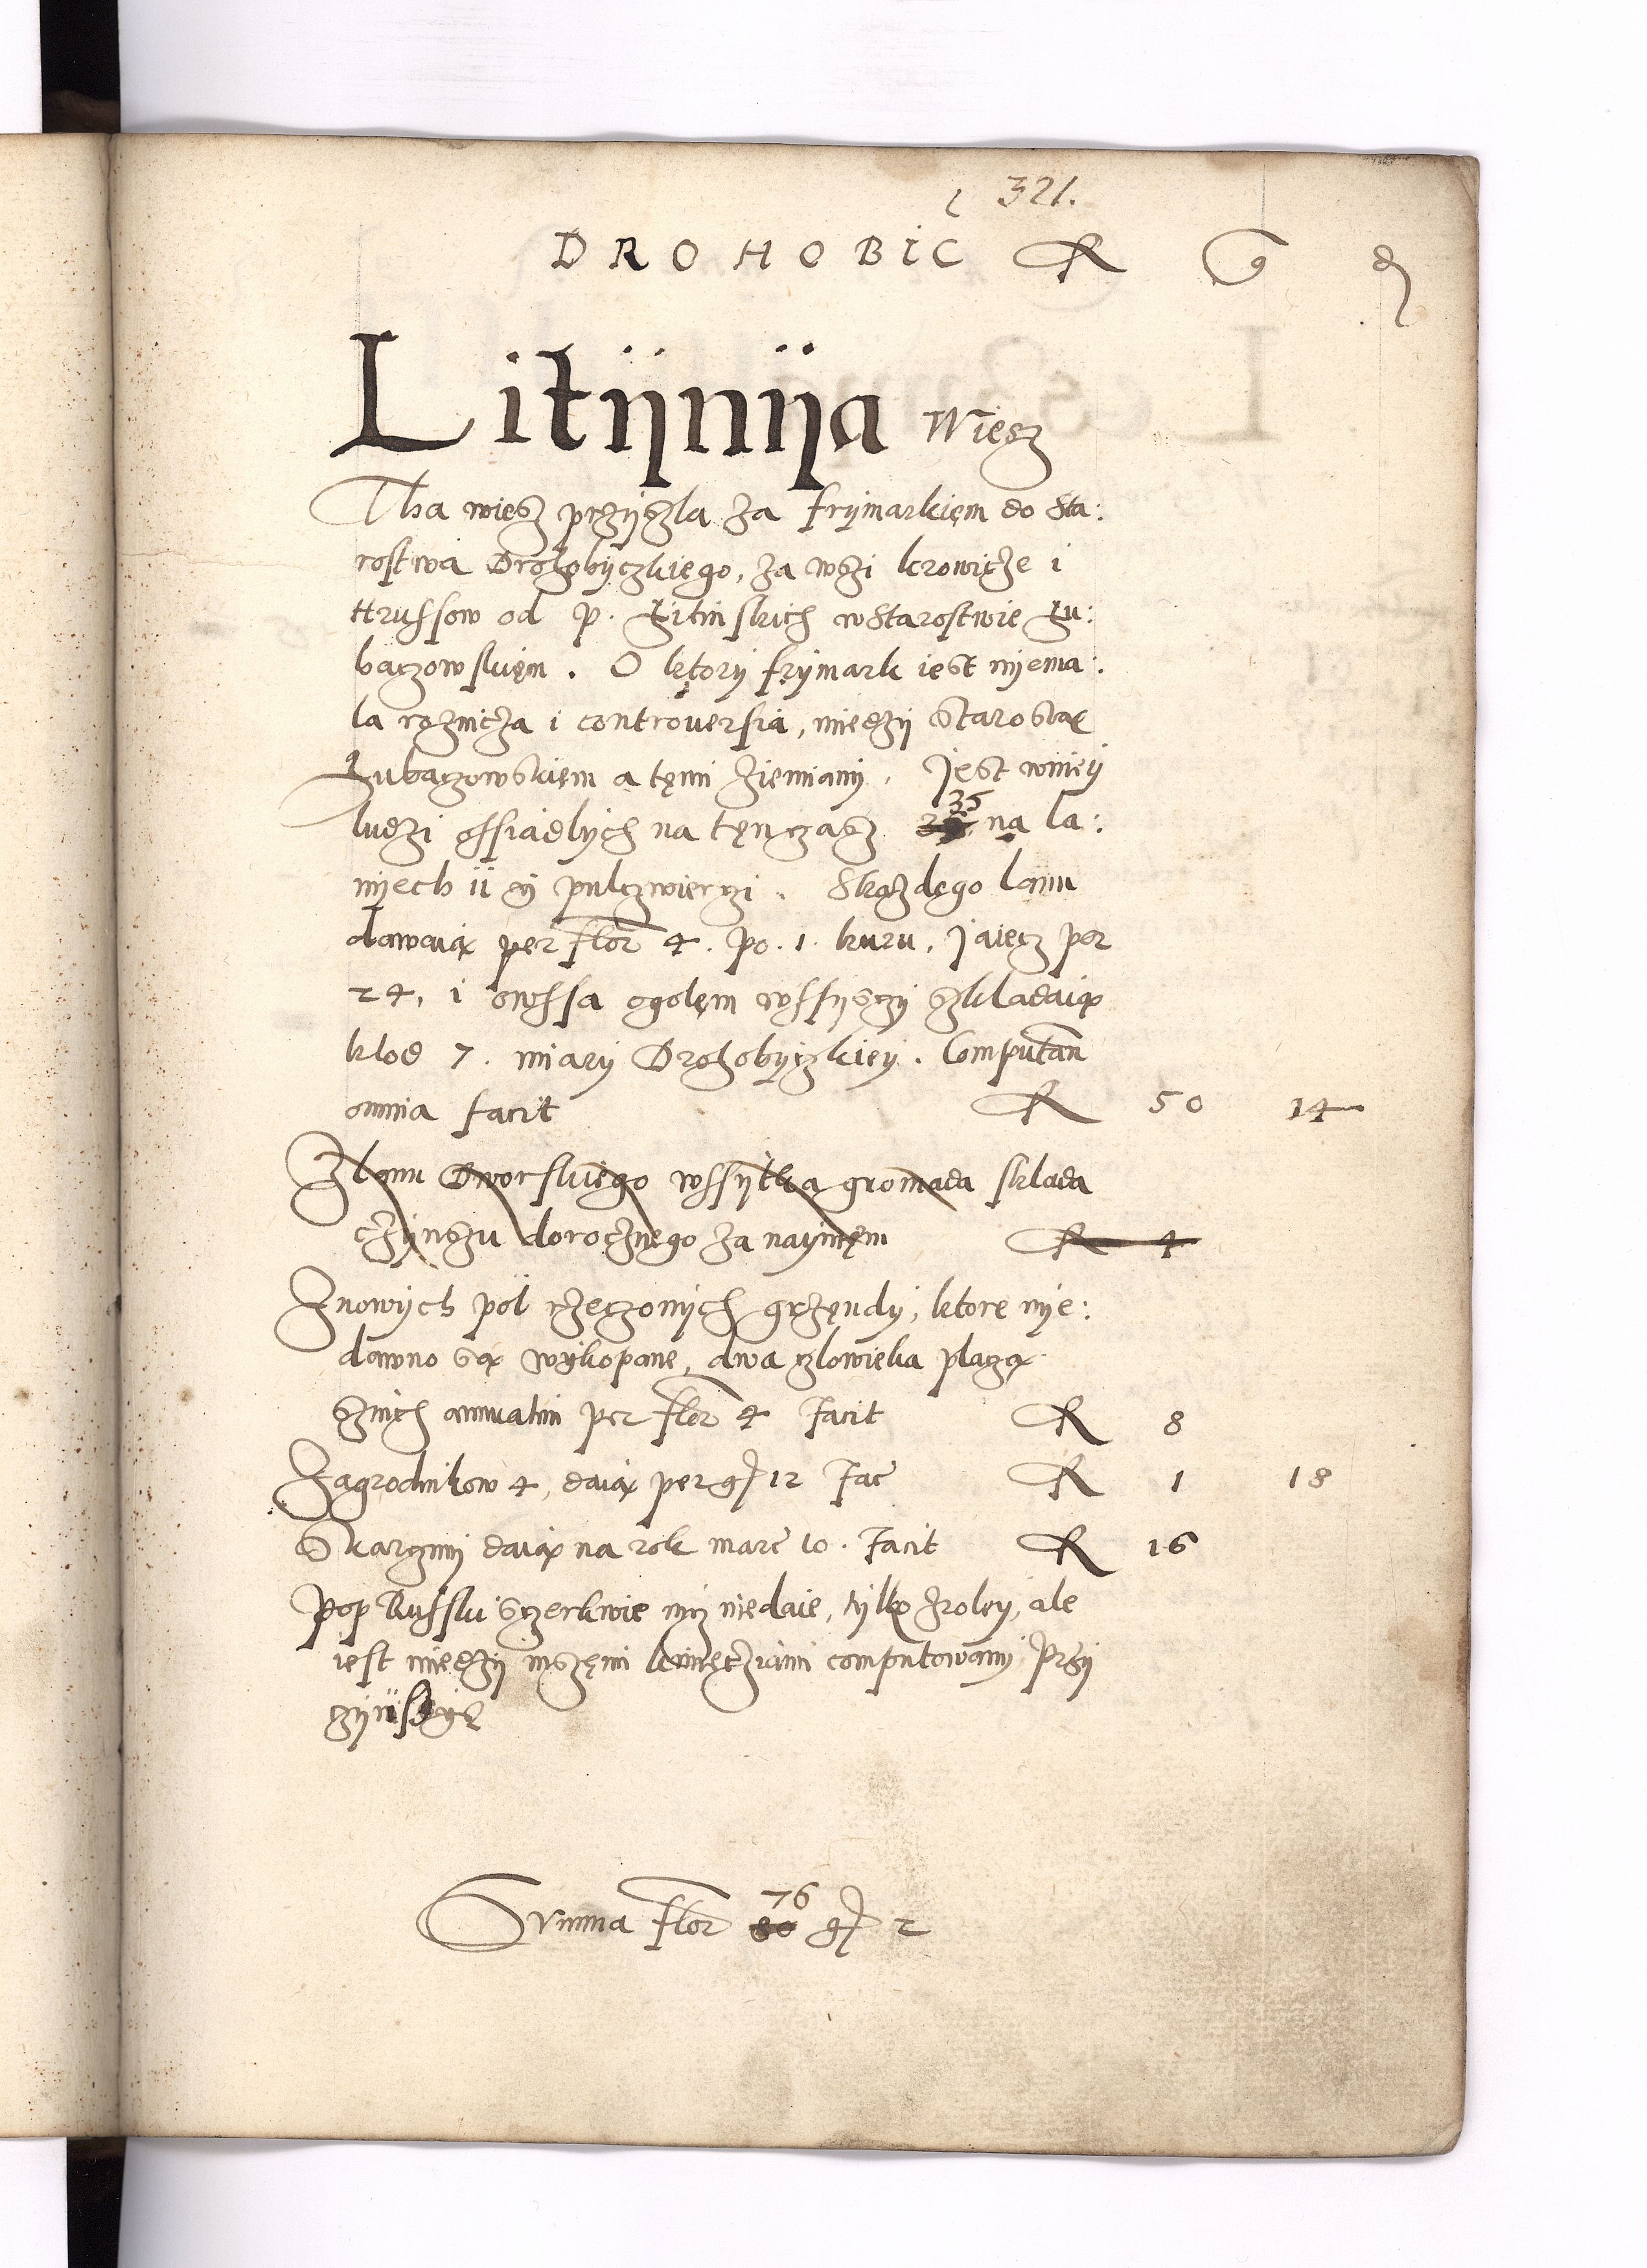 321.
DROHOBIC R g d
Litijnija Wiesz
Tha wiesz przijszla za frijmarkięm do Sta:
rostwa Drohobijczkięgo, za wszi krowicze i
Hrussow od P. Litinskich w Starostwie Lu:
baczowskięm. O ktorij frijmark iest nijema:
la roznicza i controuersia, miedzij Starostaą
Lubaczowskięm a tęmi ziemianij. Jest w niej
ludzi ossiadlijch na tęn czasz 35 na la:
nijech ii ij pulczwierczi. Skazdęgo lanu
dawaią per flor 4. po. 1. kuru, Jaiecz per
24, i owssa ogolęm wssijsczij szkladaią
klod 7. miarij Drohobijczkieij. Computan
omnia facit R 50 14
Z lanu Dworskięgo wssijtka gromada sklada
czijnszu dorocznego za naijmęm R 4
Z nowijch pol rzeczonijch grzęndij, ktore nije:
dawno są wijkopane, dwa czlowieka placzą
sznich annuatim per flor 4 facit R 8
Zagrodnikow 4, daią per g 12 Fac R 1 18
S karczmij daią na rok marc 10. Facit R 16
Pop Russki sczerkwie nicz niedaie, tijlko zroleij, ale
iest miedzij inszęmi kmięcziami computowanij Przij
Summa flor 76 g 2